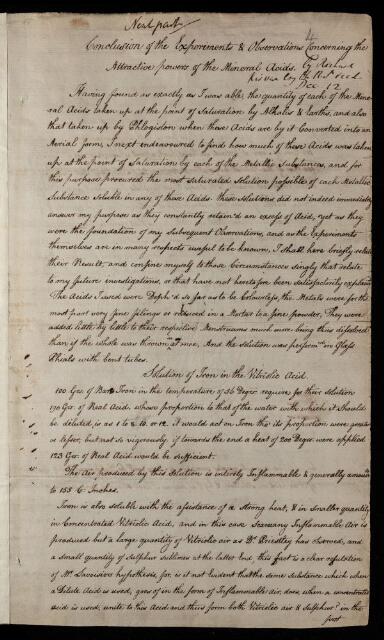 Next part
4
Conclusion of the Experements & Observations Concerning the
Attractive powers of the Mineral Acids. By Richard
Kirwan Esq F.R.S. read
Dec 12
Having found as exactly as I was able the quantity of each of the Mine-
-ral Acids taken up at the point of Saturation by Alkalis & Earths, and also
that taken up by Phlogiston when these Acids are by it Converted into an
Aerial form, I next endeavoured to find how much of these Acids was taken
up at the point of Saturation by each of the Metallic Substances, and for
this purpose procured the most saturated Solution possible of each Metallic
Substance Soluble in any of these Acids. these Solutions did not indeed immediately
answer my purpose as they constantly retain'd an excess of Acid, yet as they
were the foundation of my Subsequent Observations, and as the Experements
themselves are in many respects useful to be known, I shall here briefly relate
their Result, and confine myself to those Circumstances singly that relate
to my future investigations, or that have not heretofore been satisfactorily explained
The Acids I used were Deph'd so far as to be Colourless, the Metals were for the
most part very fine filings or reduced in a Mortar to a fine powder, They were
added little by little to their respective Menstruums much more being thus dissolved
than if the whole was thrown in at once, And the Solution was perform'd in Glass
Phials with bent tubes.
Solution of Iron in the Vitriolic Acid
100 Grs. of Bar Iron in the temperature of 56 Degrs require for their Solution
190 Grs of Real Acid, whose proportion to that of the water with which it Should
be diluted, is as 1 to 8. 10. or 12. it would act on Iron tho' its proportion were greater
or lesser, but not so vigorously, if towards the end a heat of 200 Degrs were applied
123 Grs. of Real Acid would be sufficient.
The Air produced by this Solution is intirely Inflammable & generally amounts
to 155 C. Inches.
Iron is also Soluble with the assistance of a strong heat, & in smaller quantity
in Concentrated Vitriolic Acid, and in this case scarce any Inflammable Air is
produced but a large quantity of Vitriolic air as Dr Priestley has shewed, and
a small quantity of Sulphur sublimes at the latter End, this fact is a clear refutation
of Mr. Lavoisiers hypothesis, for is it not Evident that the same Substance which when
a Dilute Acid is used, goes of in the form of Inflammable air, does when a concentrated
acid is used, unite to this Acid and thus form both Vitriolic air & Sulphur? in the
first